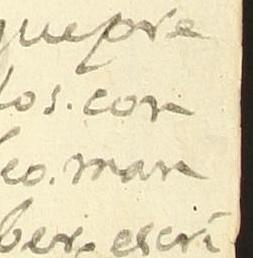 quepre
los. con
eo. man
ber. escri